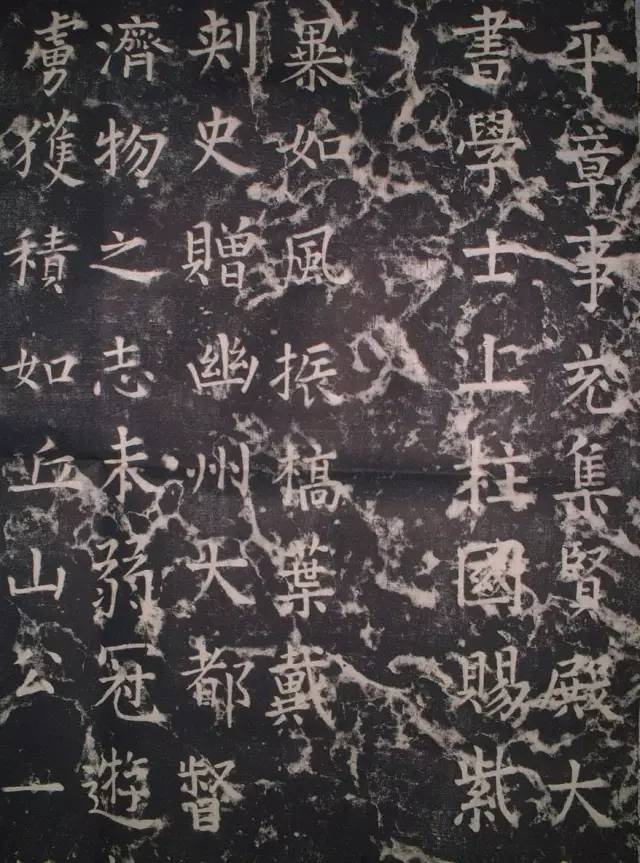 平章事充集賢殿大
書學士上柱國賜紫
暴如風振槁葉戴
刾史贈幽州大都督
濟物之志未弱冠遊
虜獲積如丘山公一